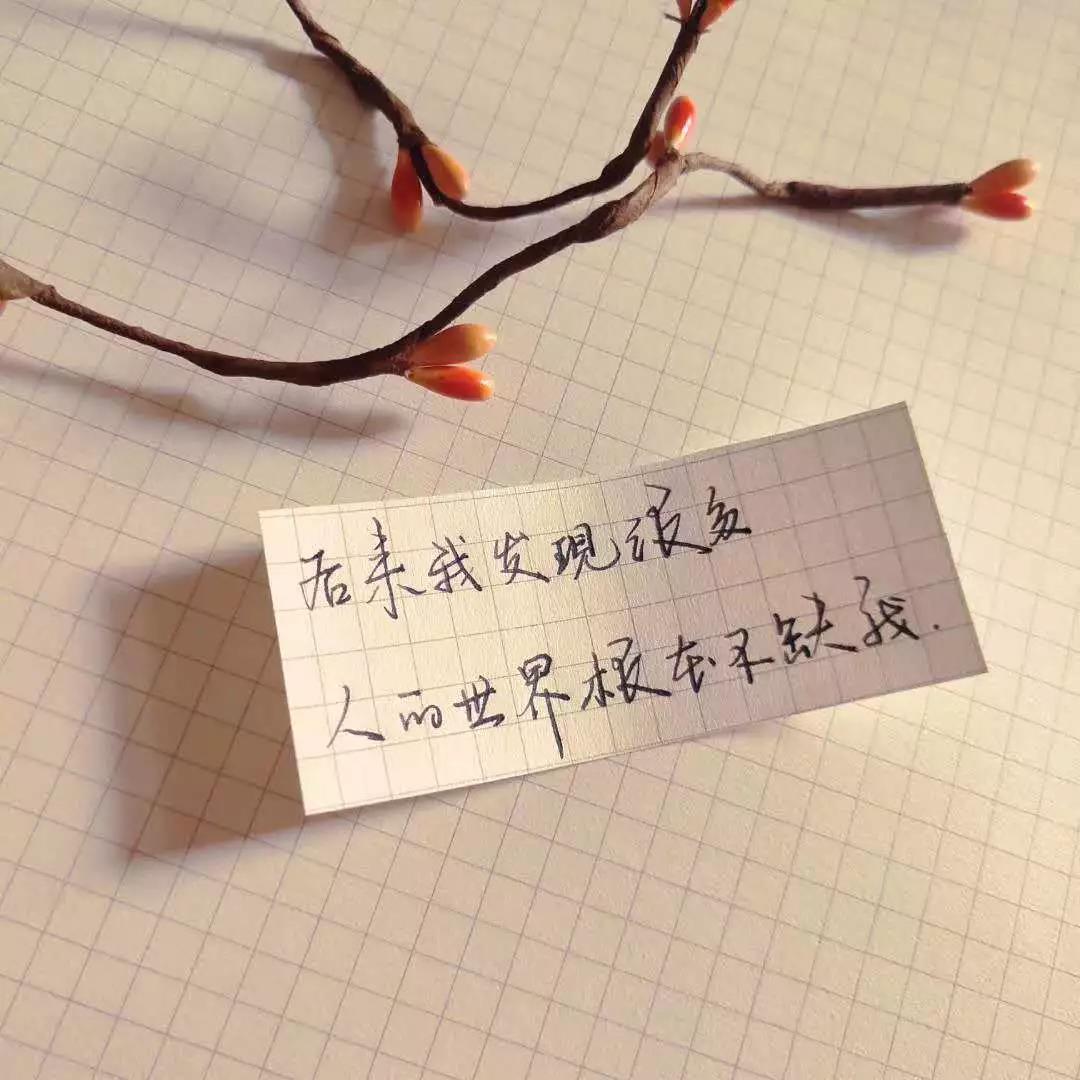 后来我发现很多
人的世界根本不缺我.